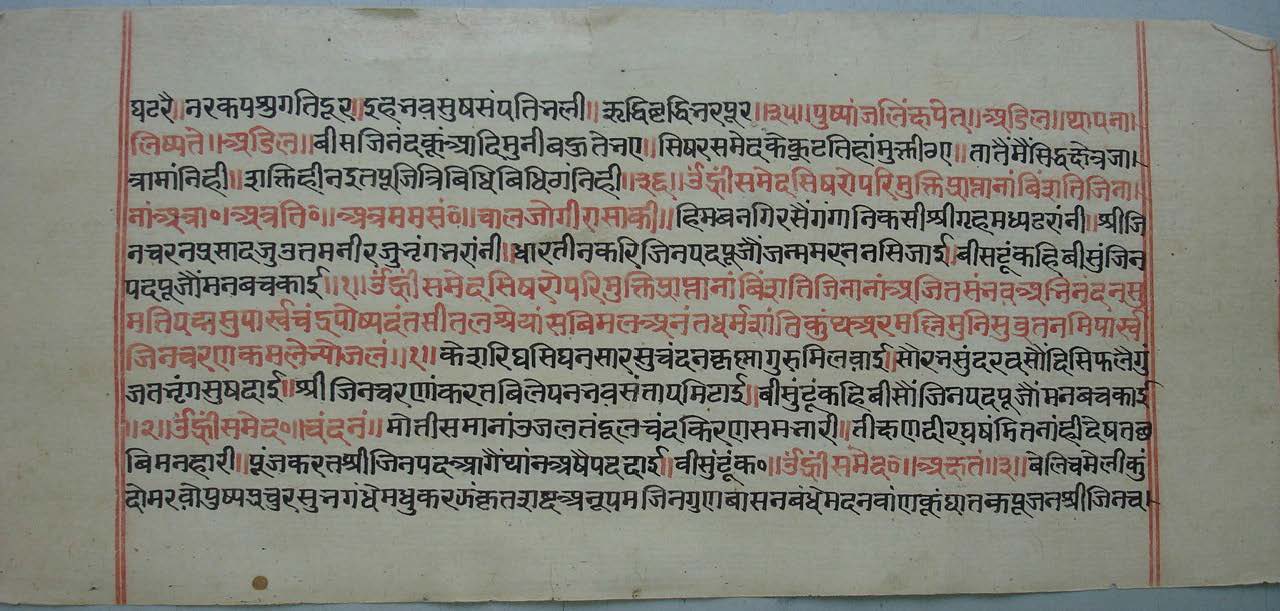 घटरै॥नरकपशुगतिदूर॥इहभवसुषसंपतिभली॥ऋद्धिवृद्धिभरपूर॥३५॥पुष्पांजलिंक्षपेत्॥अडिल॥थापना॥
लिष्यते॥अडिल॥बीसजिनंदकूंआदिमुनीबऊतेभए॥सिषरसमेदकेकूटतिहांमुक्तीगए॥तातैमैंसिद्धक्षेत्रजा।
त्रामांनिही॥शक्तिहीनइतपूजित्रिबिधिबिधिगंनिही॥३६॥ॐह्रींसमेदसिषरोपरिमुक्तिप्राप्तानांबिंशतिजिना।
नांअत्रा०॥अत्रति०॥अत्रममसं०॥चालजोगीरासाकी॥हिमबनगिरसैंगंगानिकसीश्रीगृहमध्यटरांनी॥श्रीजि
नचरनप्रसादजुउतमनीरजुभृंगभरांनी॥धारतीनकरिजिनपदपूजौंजन्ममरननसिजाई॥बीसटूंकहिबीसुंजिन
पदपूजौंमनबचकाई॥१॥ॐह्रींसमेदसिषरोपरिमुक्तिप्राप्तानांबिंशतिजिनानांअजितसंभवअभिनंदनसु
मतिपद्मसुपार्स्वचंद्रपौष्पदंतसीतलश्रेयांसबिमलअनंतधर्मशांतिकुंथअरमल्लिमुनिसुव्रतनमिपार्स्व
जिनचरणकमलेभ्योजलं॥१॥केशरिघसिघनसारसुचंदनकृष्णागुरुमिलवाई॥सौरभसुंदरदसौंदिसिफैलैगुं
जतभृंगसुषदाई॥श्रीजिनचरणांकरतबिलेपनभवसंतापमिटाई॥बीसुंटूंकहिबीसौंजिनपदपूजौंमनबचकाई
॥२॥ॐह्रींसमेद०॥चंदनं॥मोतीसमानांउजलतंदूलचंदकिरणसमभारी॥तीक्षणदीरघषंडितनांहीदेषतछ
बिमनहारी॥पूंजकरतश्रीजिनपदआगैंथांनअषैपदद्दाई॥वीसुंटूंक०॥ॐह्रींसमेद०॥अक्षतं॥३॥बेलिचमेलीकुं
दोमरवोपुष्पप्रचुरसुभगंधैमधुकरझंकृतशब्दअनूपमजिनगुणबासनबंधैमदनबांणकूंघातक्पूजनश्रीजिनच।